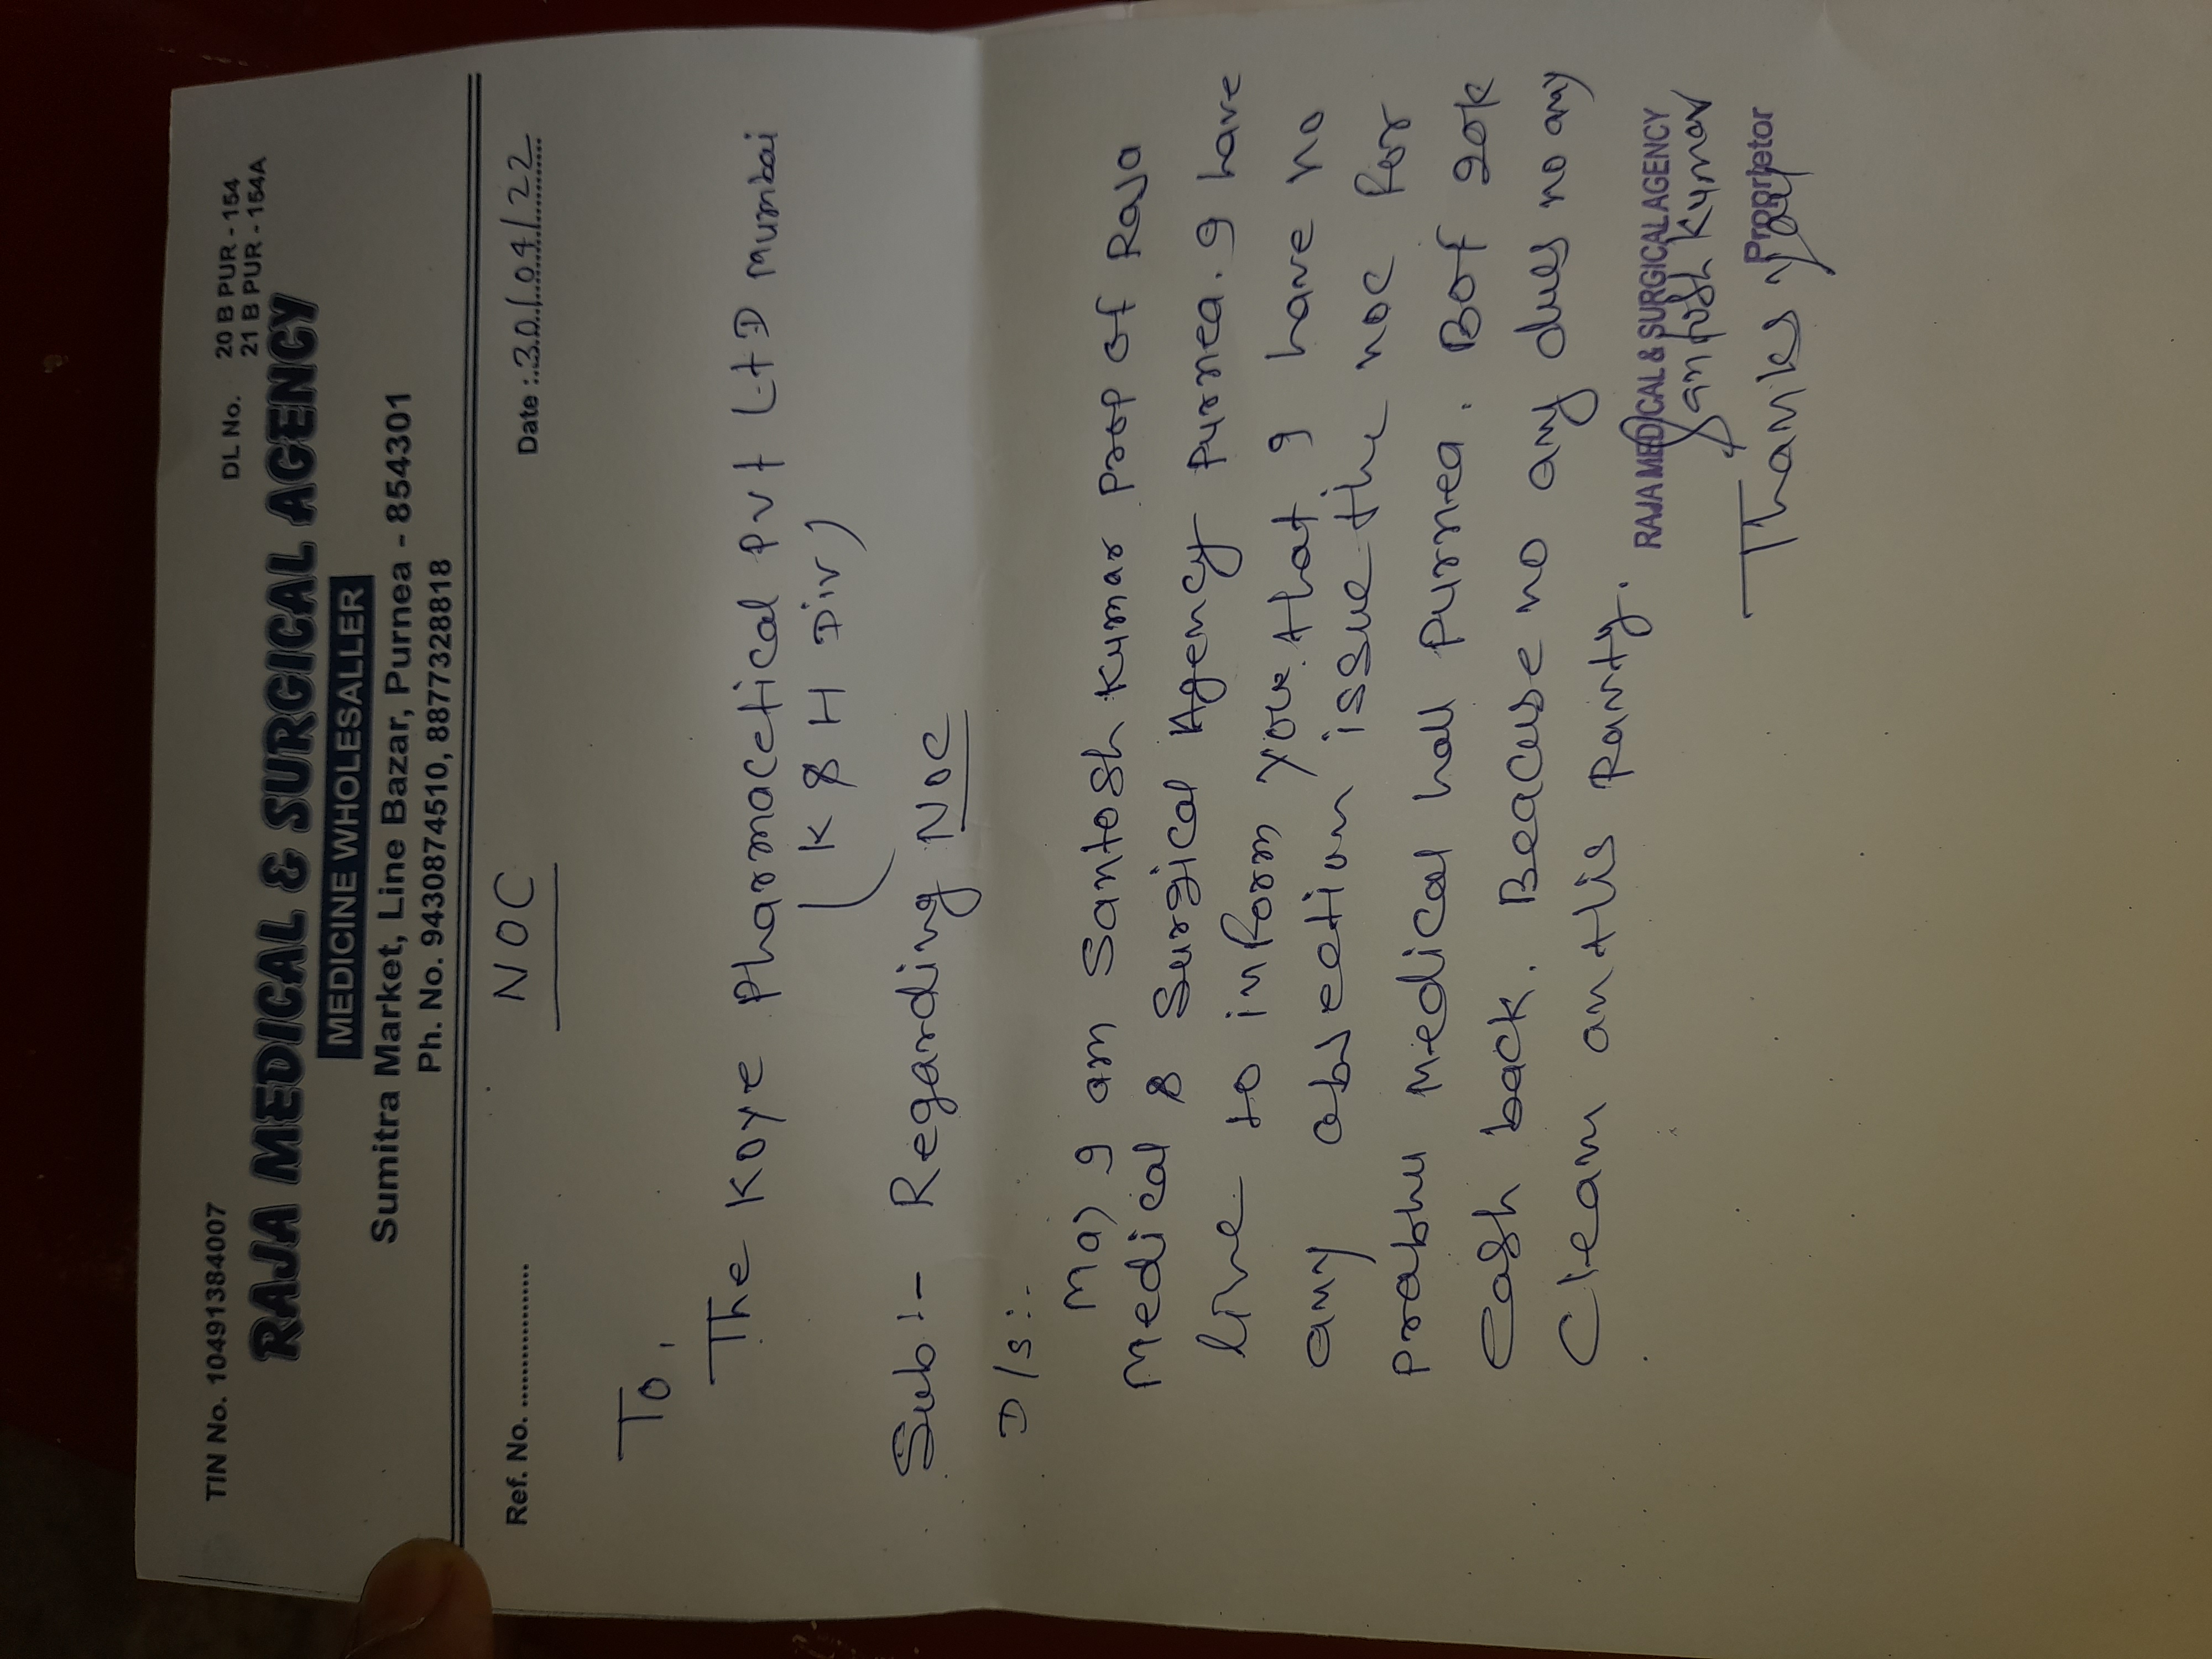 TIN No. 10491384007
DL No. 20 B PUR - 154
21 B PUR - 154A
RAJA MEDICAL & SURGICAL AGENCY
MEDICINE WHOLESALLER
Sumitra Market, Line Bazar, Purnea - 854301
Ph. No. 9430874510, 8877328818
Ref. No. ..................
Date :.30/04/22
NOC
To,
The Koye Pharmacetical Pvt LtD Mumbai
(K & H Div)
Sub:- Regarding NOC
D/S:-
May I am Santosh Kumar Prop of Raja
Medical & Surgical Agency Purnea. I have
live to inform you that I have no
any objection issue the noc for
Prabhu Medical hall Purnea. Bof 20k
Cash back. Beacuse no any dues no any
Cleam on this Party.
RAJA MEDICAL & SURGICAL AGENCY
Santosh Kumar
Proprietor
Thanks you